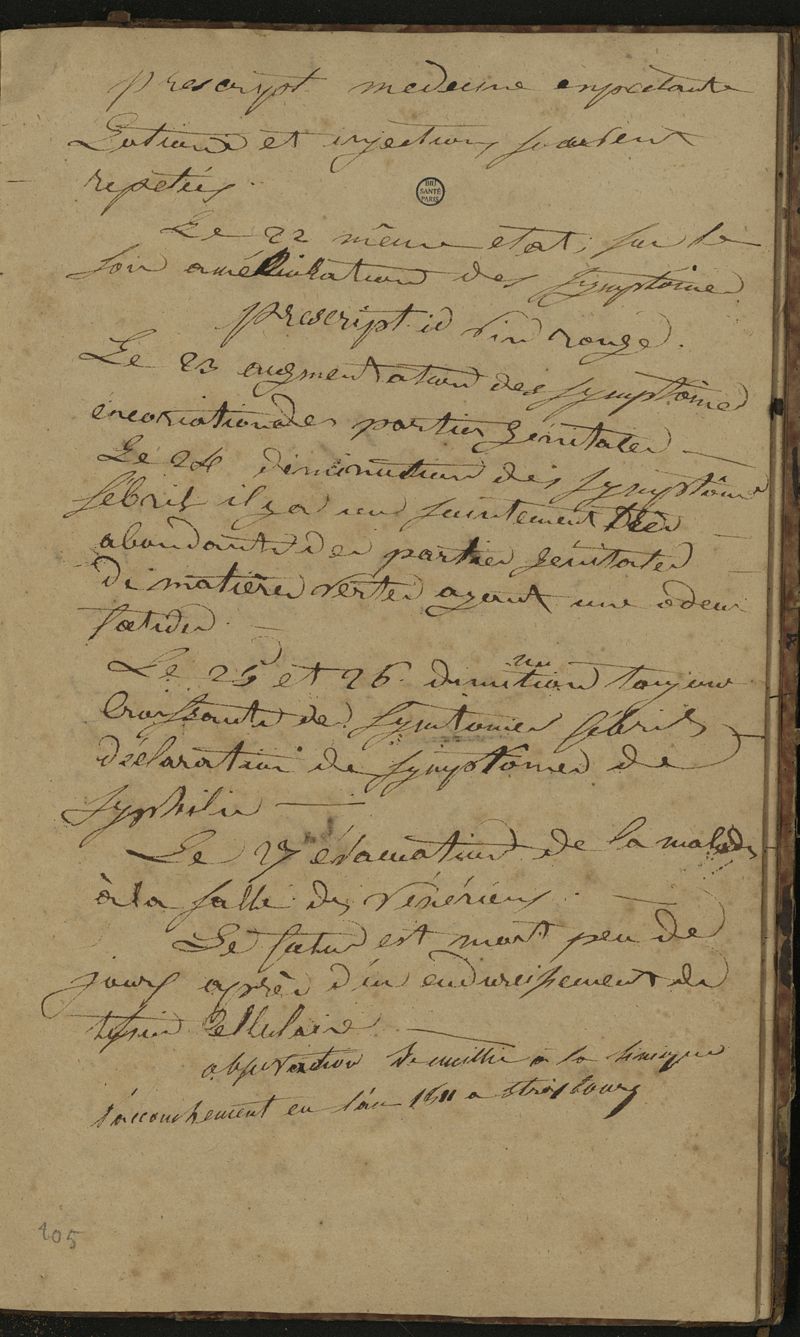 prescript medecine expectante
Lotions et injections souvent
repetées.
BIU
SANTÉ
PARIS
Le 22 même etat, sur le
soir amélioration des symptômes
prescript. id vin rouge.
Le 23 augmentation des symptômes
excoriation des parties génitales —
Le 24 diminution des symptôm
febril il ya un suintement très —
abondante des parties génitales —
de matières vertes ayant une odeur
fœtides —
Le 25 et 26 diminution toujour
croissante des symtomes febrils
déclaration de symptômes de
syphilis —
Le 27 évacuation de la malade
à la salle des vénériens. —
Le fœtus est mort peu de
jours après d'un endurcissement du
tissu cellulaire —
observation recueillie a la clinique
d'accouchement en l'an 1811 a strasbourg
105